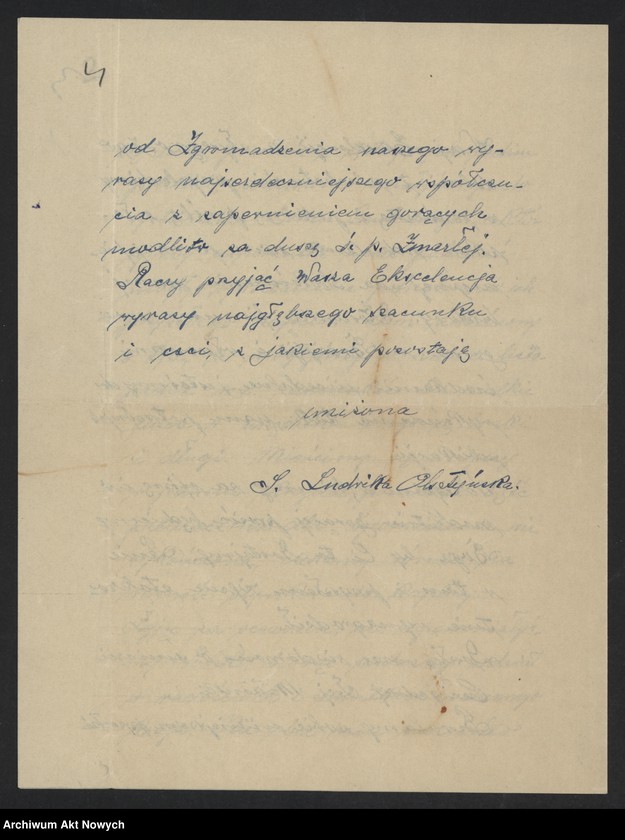 4
od Zgromadzenia naszego wy-
razy najserdeczniejszego współczu-
cia z zapewnieniem gorących
modlitw za duszę ś. p. Zmarłej.
Raczy przyjąć Wasza Ekscelencja
wyrazy najgłębszego szacunku
i czci, z jakiemi pozostaję
uniżona
S. Ludwika Olsztyńska.
Archiwum Akt Nowych